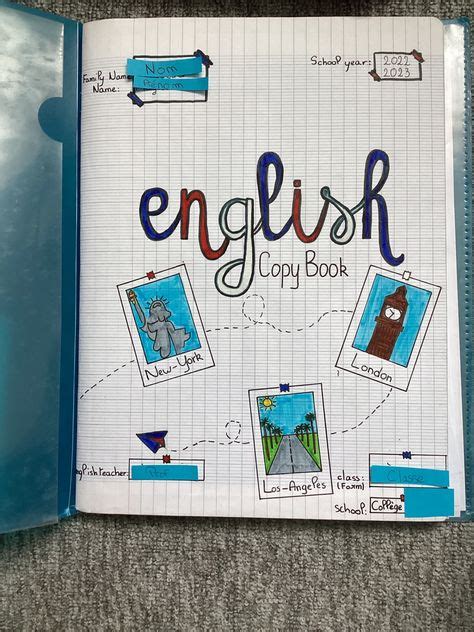 Family Name
Name:
Nom
Prénom
School year:
2022
2023
english
Copy Book
New-York
London
Los-Angeles
english teacher:
class:
(Form)
Classe
school:
Collège